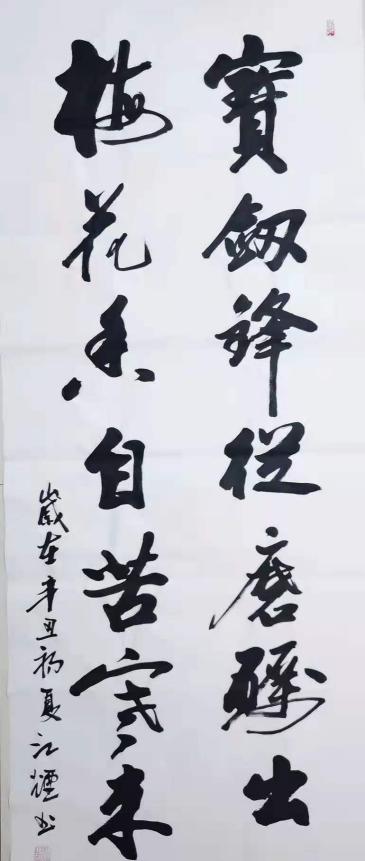 寶劔鋒從磨礪出
梅花香自苦寒来
歲在辛丑初夏江煙书